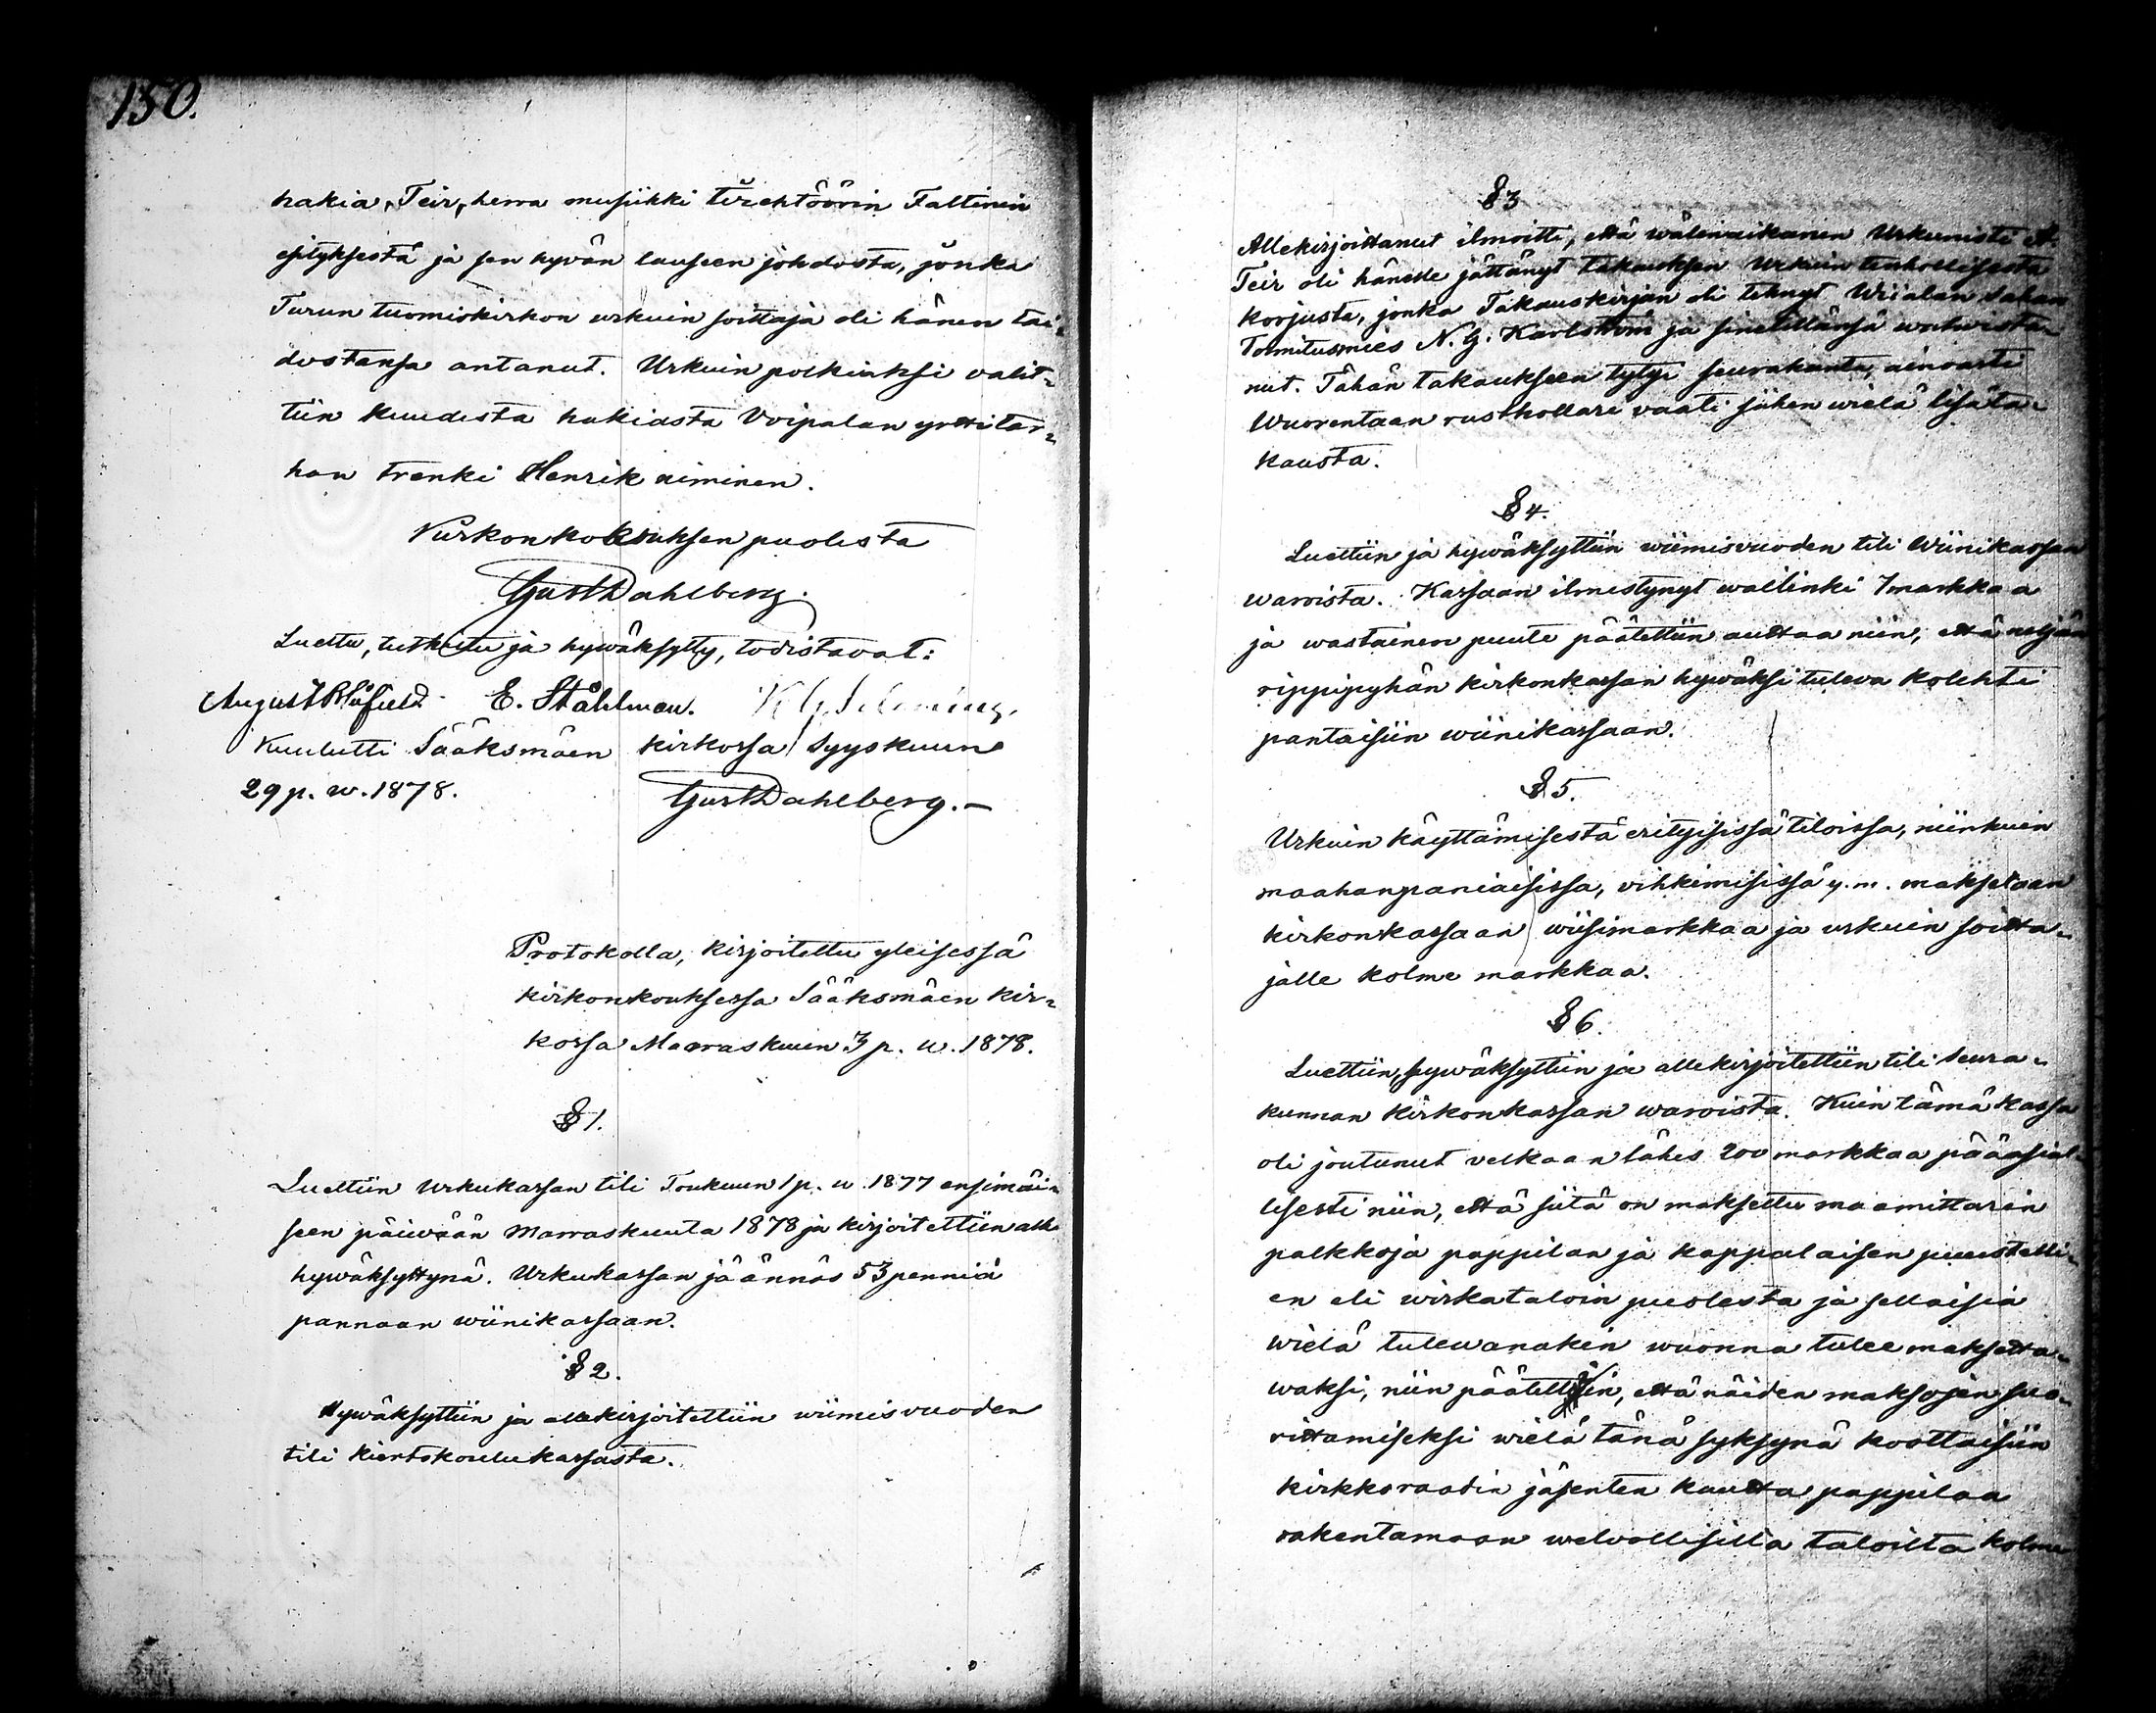 150.
hakia, Teir, herra musiikki tirehtöörin Faltinin
esityksestä ja sen hyvän lauseen johdosta, jonka
Turun tuomiokirkon urkuin soittaja oli hänen tai-
dostansa antanut. Urkuin polkiaksi valit-
tiin kuudesta hakiasta Voipalan yrttitar-
han trenki Henrik niminen.
Kirkonkokouksen puolesta
Gust Dahlberg.
Luettu, tutkittu ja hywäksytty, todistavat:
August E. Ståhlman.
Kuulutti Sääksmäen kirkossa Syyskuun
29 p. w. 1878. Gust Dahlberg.
Protokolla, kirjoitettu yleisessä
kirkonkouksessa Sääksmäen kir-
kossa Marraskuun 3 p. w. 1878.
§ 1.
Luettiin Urkukassan tili Toukuun 1 p. w. 1877 ensimäi-
seen päiwään Marraskuuta 1878 ja kirjoitettiin alle
hywäksyttynä. Urkukassan jäännös 53 penniä
pannaan wiinikassaan.
§ 2.
Hywäksyttiin ja allekirjoitettiin wiimisvuoden
tili kiertokoulukassasta.
§ 3
Allekirjoittanut ilmoitti, että wälinaikanen Urkunisti A.
Teir oli hänelle jättänyt takauksen Urkuin
korjusta, jonka Takauskirjan oli tehnyt Wiialan Sahan
Toimitusmies N. G. Karlström ja sinetillänsä wahwista-
nut. Tähän takaukseen tytyi seurakunta, ainoasti
Wuorentaan rusthollari vaati siihen wielä lisäta-
kausta.
§ 4.
Luettiin ja hywäksyttiin wiimisvuoden tili Wiinikassan
waroista. Kassaan ilmestynyt wallinki 7 markkaa
ja wastainen puute päätettiin auttaa niin, että neljän
rippipyhän kirkonkassan hywäksi tuleva kolehti
pantaisiin wiinikassaan.
§ 5.
Urkuin käyttämisestä erityisissä tiloissa, niinkuin
maahanpaniaisissa, vihkimisissä y. m. maksetaan
kirkonkassaan wiisimarkkaa ja urkuin soitta-
jalle kolme markkaa.
§ 6.
Luettiin, hywäksyttiin ja allekirjoitettiin tili Seura-
kunnan kirkonkassan waroista. Kuin tämä kassa
oli joutunut velkaan lähes 200 markkaa pääasial-
lisesti niin, että siitä on maksettu maamittarin
palkkoja pappilan ja kappalaisen puustelli-
en eli wirkataloin puolesta ja sellaisia
wielä tulewanakin wuonna tulee maksetta-
waksi, niin päätettiin, että näiden maksojen suo-
rittamiseksi wielä tänä syksynä koottaisiin
kirkkoraadin jäsenten kautta pappilaa
rakentamaan welvollisilta taloilta kolme